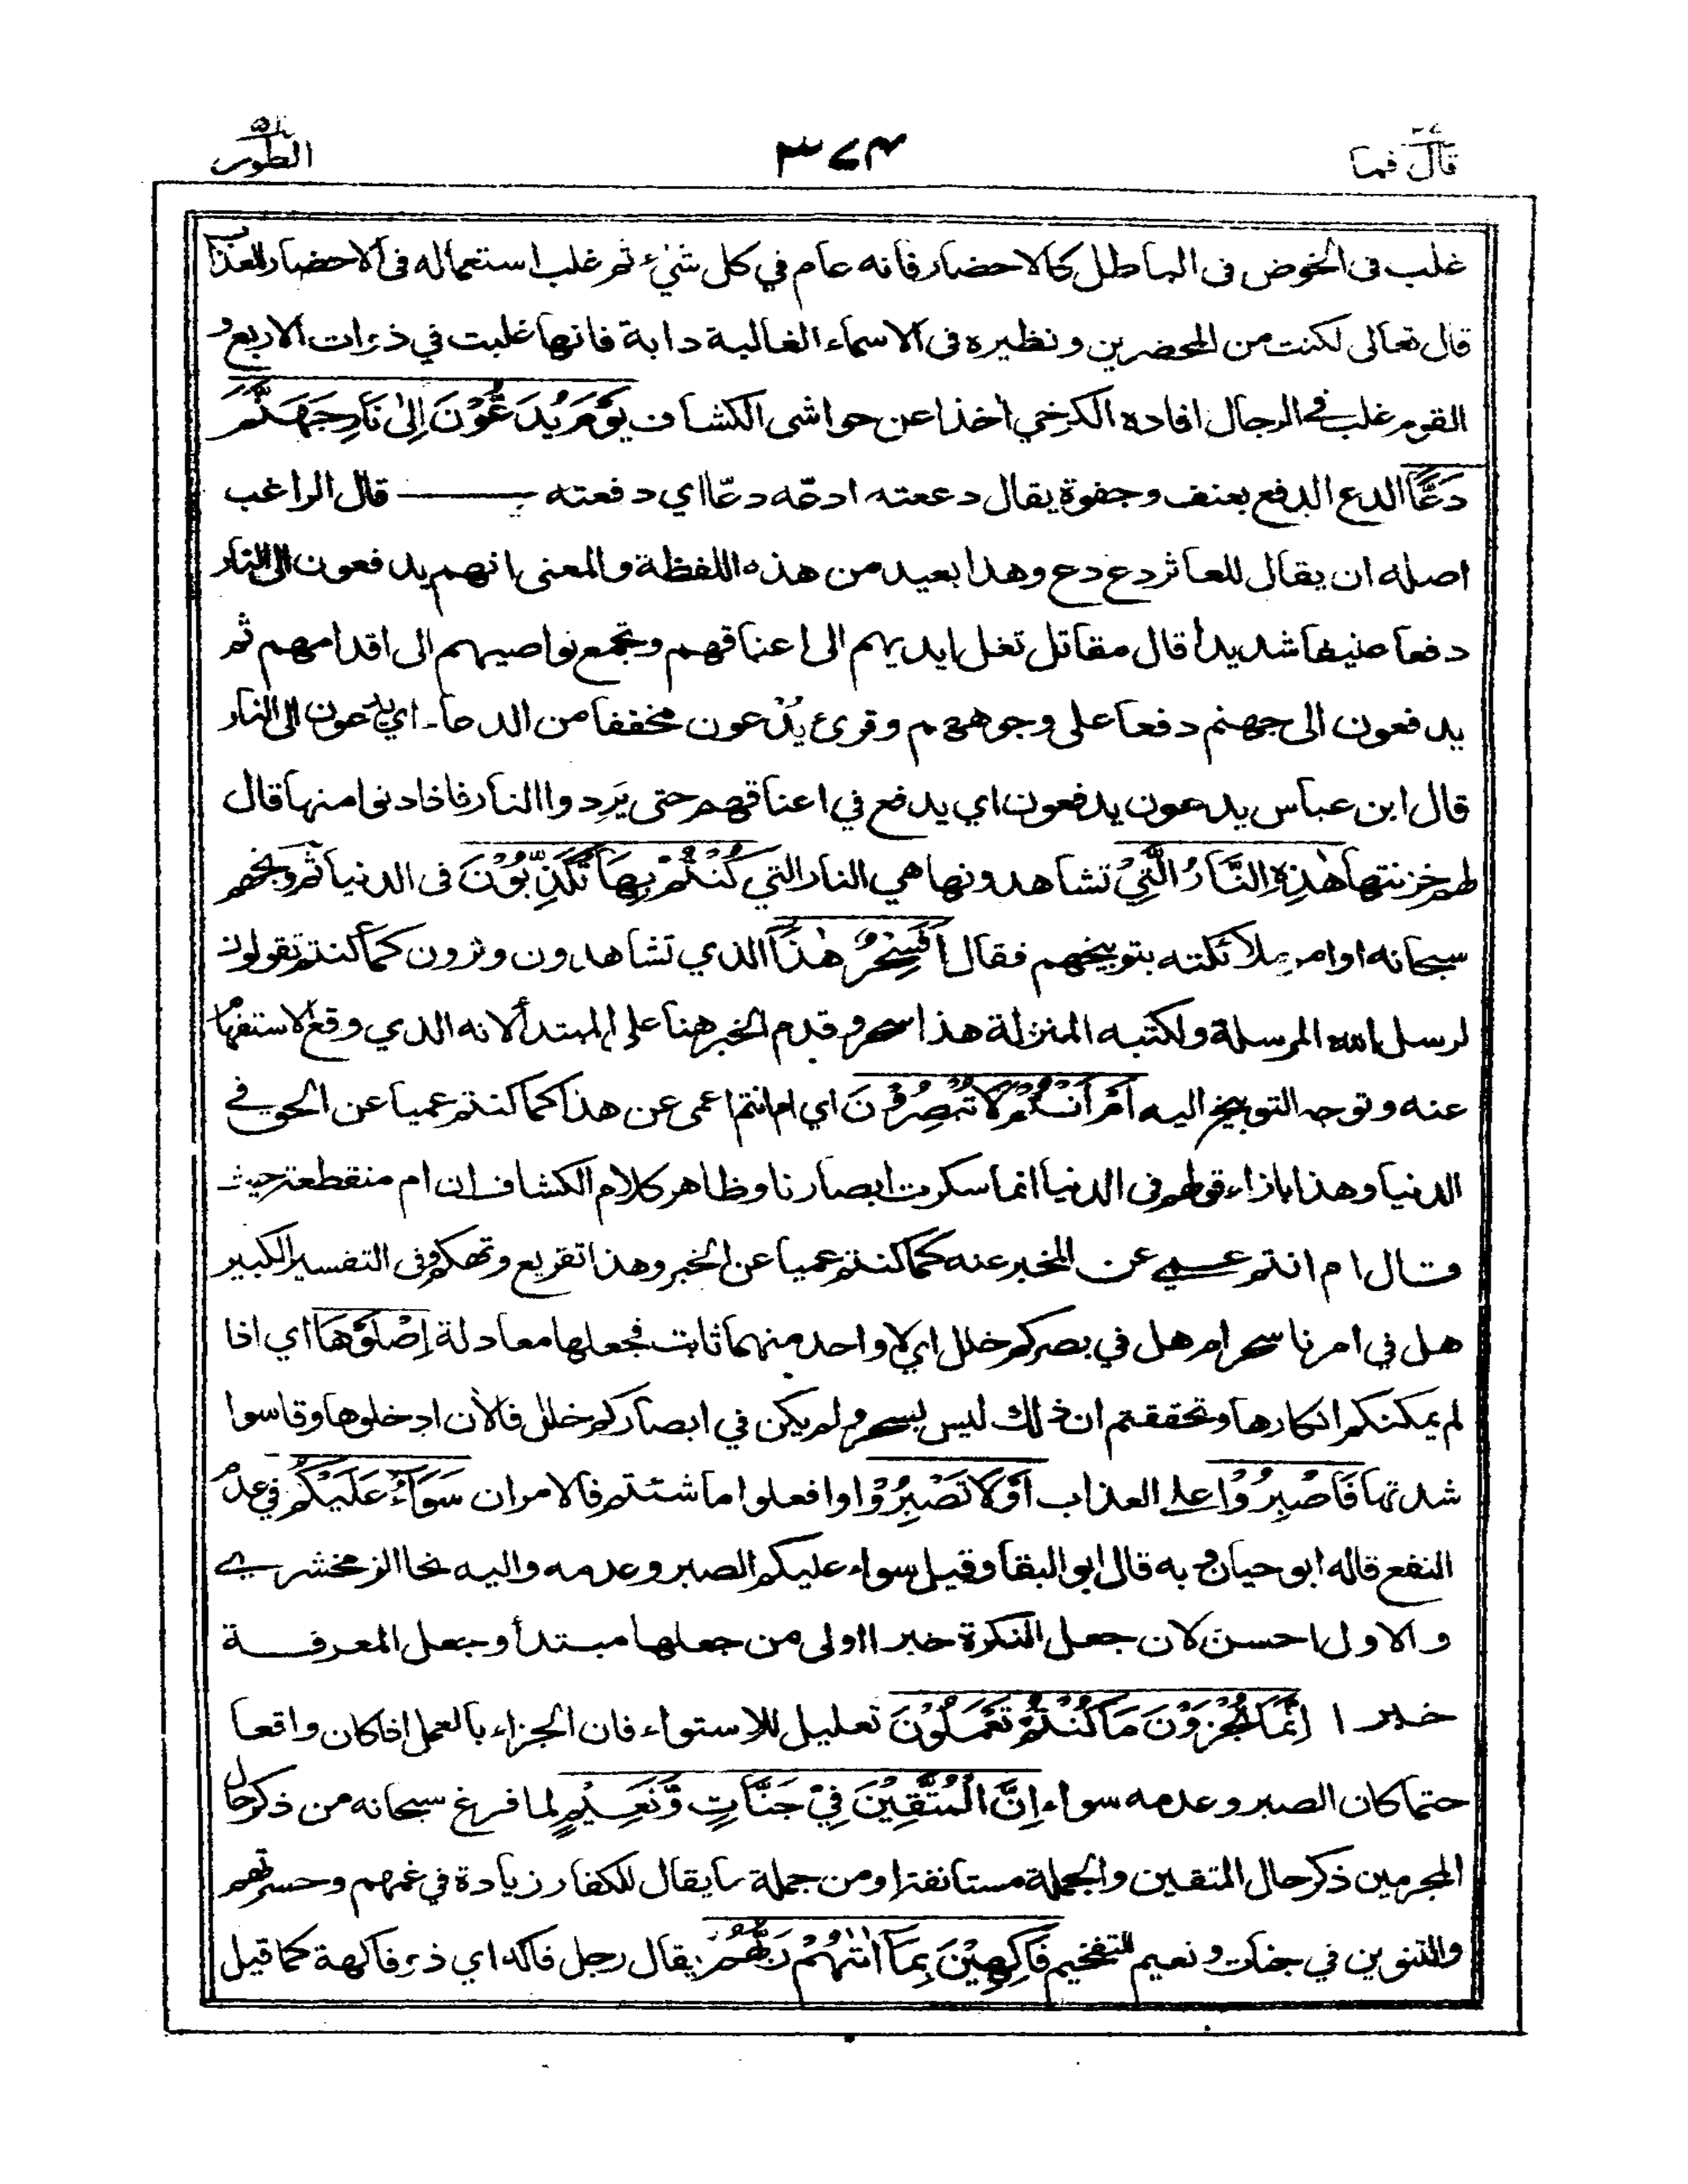 قال فما
٣٧٤
الطور
غلب فى الخوض فى الباطل كالاحضار فانه عام في كل شيء ثم غلب استعماله فى الاحضار للعذاب
قال تعالى لكنت من المحضرين ونظيره فى الاسماء الغالبة دابة فانها غلبت في ذوات الاربع و
القوم غلب في الرجال افاده الكرخي أخذا عن حواشى الكشاف يَوْمَ يُدَعُّوْنَ اِلٰى نَارِ جَهَنَّمَ
دَعًّا الدع الدفع بعنف وجفوة يقال دععته ادعّه دعّا اي دفعته قال الراغب
اصله ان يقال للعاثر دع دع وهذا بعيد من هذه اللفظة والمعنى انهم يدفعون الى النار
دفعا عنيفا شديدا قال مقاتل تغل ايديهم الى اعناقهم وتجمع نواصيهم الى اقدامهم ثم
يدفعون الى جهنم دفعا على وجوههم وقرئ يُدْعون مخففا من الدعاء اي يدعون الى النار
قال ابن عباس يدعون يدفعون اي يدفع في اعناقهم حتى يَرِدوا النار فاذا دنوا منها قال
لهم خزنتها هٰذِهِ النَّارُ الَّتِيْ تشاهدونها هي النار التي كُنْتُمْ بِهَا تُكَذِّبُوْنَ فى الدنيا ثم وبخهم
سبحانه او امر ملائكته بتوبيخهم فقال اَفَسِحْرٌ هٰذَا الذي تشاهدون وترون كما كنتم تقولون
لرسل الله المرسلة ولكتبه المنزلة هذا سحر وقدم الخبر هنا على المبتدأ لانه الذي وقع الاستفهام
عنه وتوجه التوبيخ اليه اَمْ اَنْتُمْ لَا تُبْصِرُوْنَ اي ام انتم اعمى عن هذا كما كنتم عميا عن الحق في
الدنيا وهذا بازاء قولهم فى الدنيا انما سكرت ابصارنا وظاهر كلام الكشاف ان ام منقطعة حيث
قال ام انتم عمي عن المخبر عنه كما كنتم عميا عن الخبر وهذا تقريع وتهكم وفى التفسير الكبير
هل في امرنا سحر ام هل في بصركم خلل اي لا واحد منهما ثابت فجعلها معادلة اِصْلَوْهَا اي اذا
لم يمكنكم انكارها وتحققتم ان ذلك ليس بسحر ولم يكن في ابصاركم خلل فالآن ادخلوها وقاسوا
شدتها فَاصْبِرُوْا على العذاب اَوْ لَا تَصْبِرُوْا وافعلوا ما شئتم فالامران سَوَآءٌ عَلَيْكُمْ في عدم
النفع قاله ابو حيان وبه قال ابو البقا وقيل سواء عليكم الصبر وعدمه واليه نحا الزمخشري
والاول احسن لان جعل النكرة خبرا اولى من جعلها مبتدأ وجعل المعرفة
خبرا اِنَّمَا تُجْزَوْنَ مَا كُنْتُمْ تَعْمَلُوْنَ تعليل للاستواء فان الجزاء بالعمل اذا كان واقعا
حتما كان الصبر وعدمه سواء اِنَّ الْمُتَّقِيْنَ فِيْ جَنَّاتٍ وَّنَعِيْمٍ لما فرغ سبحانه من ذكر حال
المجرمين ذكر حال المتقين والجملة مستانفة او من جملة ما يقال للكفار زيادة في غمهم وحسرتهم
والتنوين في جنات ونعيم للتفخيم فَاكِهِيْنَ بِمَآ اٰتٰهُمْ رَبُّهُمْ يقال رجل فاكه اي ذو فاكهة كما قيل